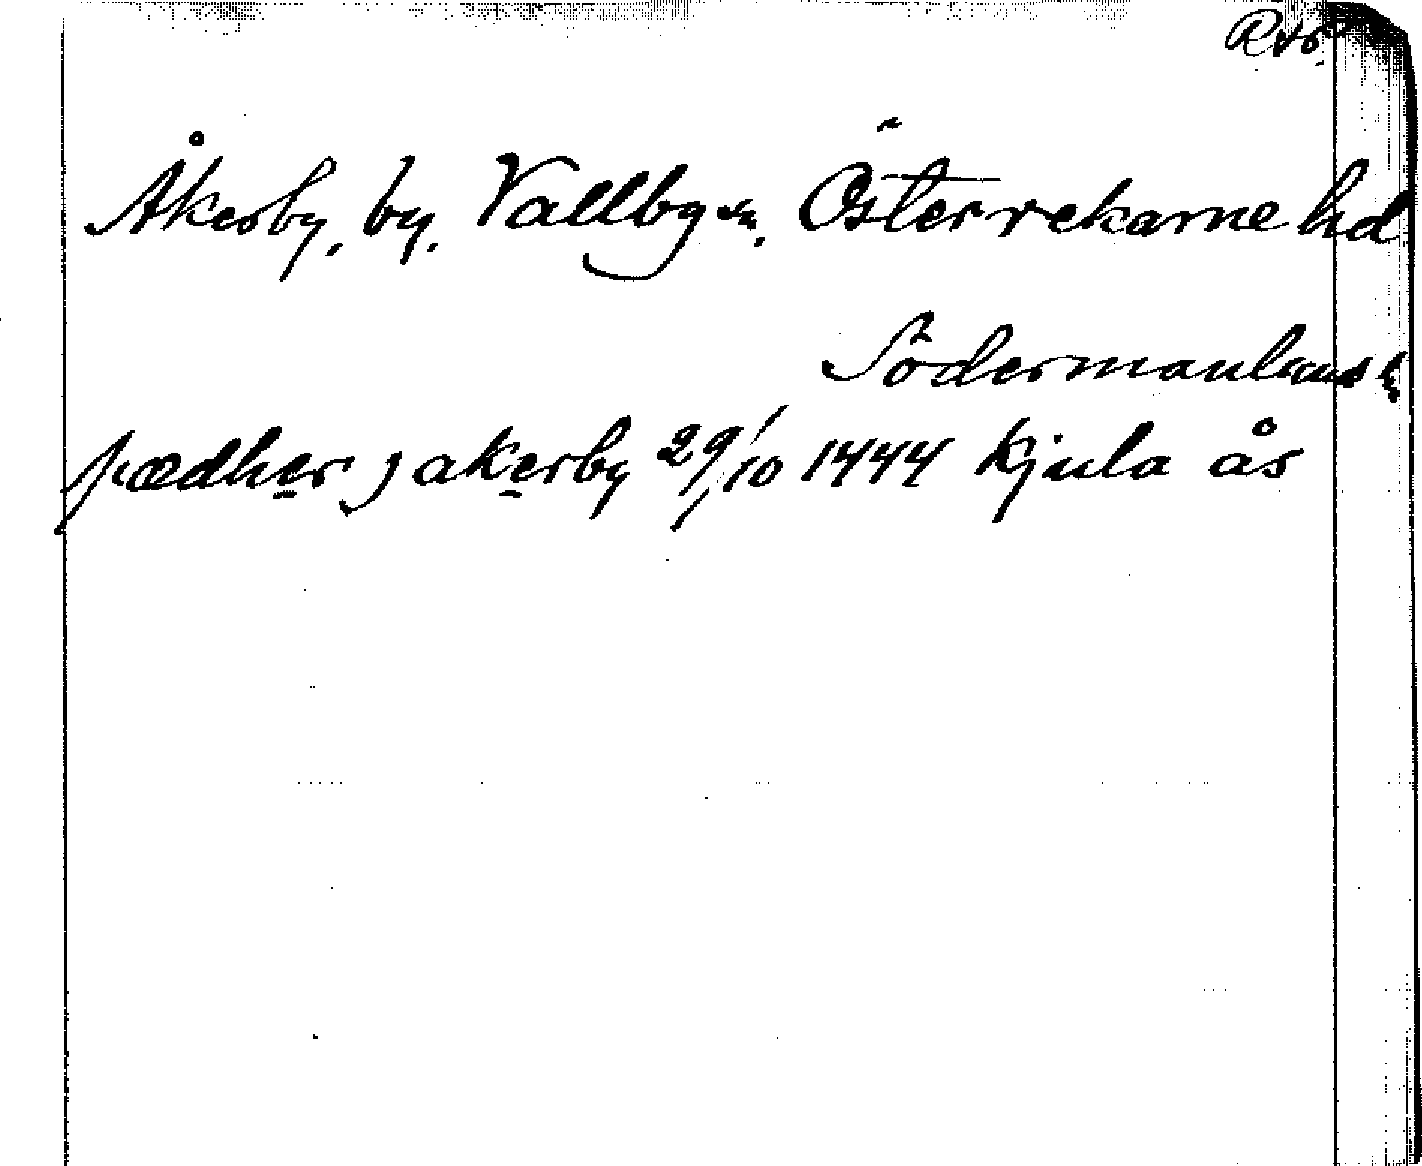 Rto.
Åkerby, by. Vallby sn. Österrekarne hd
Södermanlands l.
pædher j akerby 29/10 1444 Kjula ås